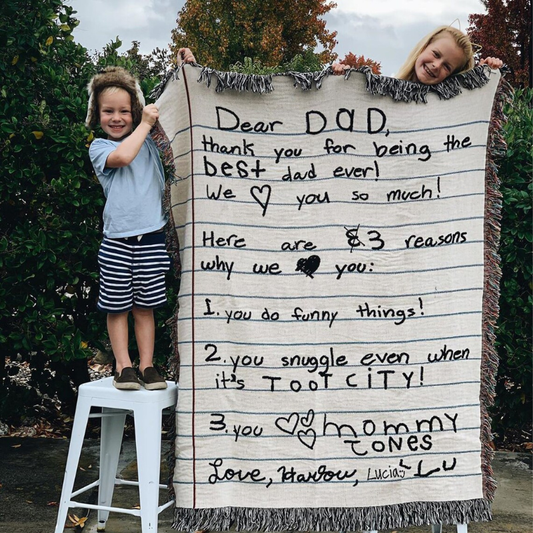 Dear DaD,
thank you for being the
best dad ever!
We ♡ you so much!
Here are 3 reasons
why we ♥ you:
1. you do funny things!
2. you snuggle even when
it's TOOT CITY!
3. you ♡♡♡ mommy
TONES
Love, Harlow, Lucias